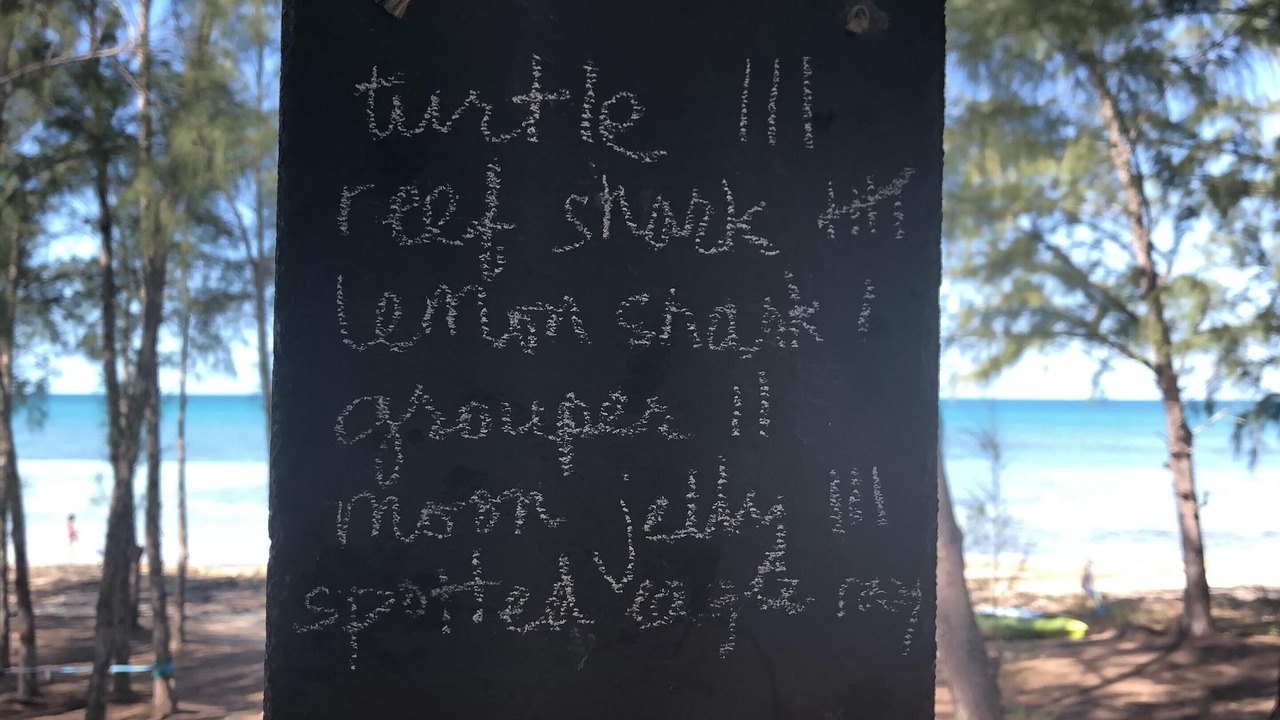 turtle |||
reef shark 卌
lemon shark |
grouper ||
moon jelly |||
spotted eagle ray